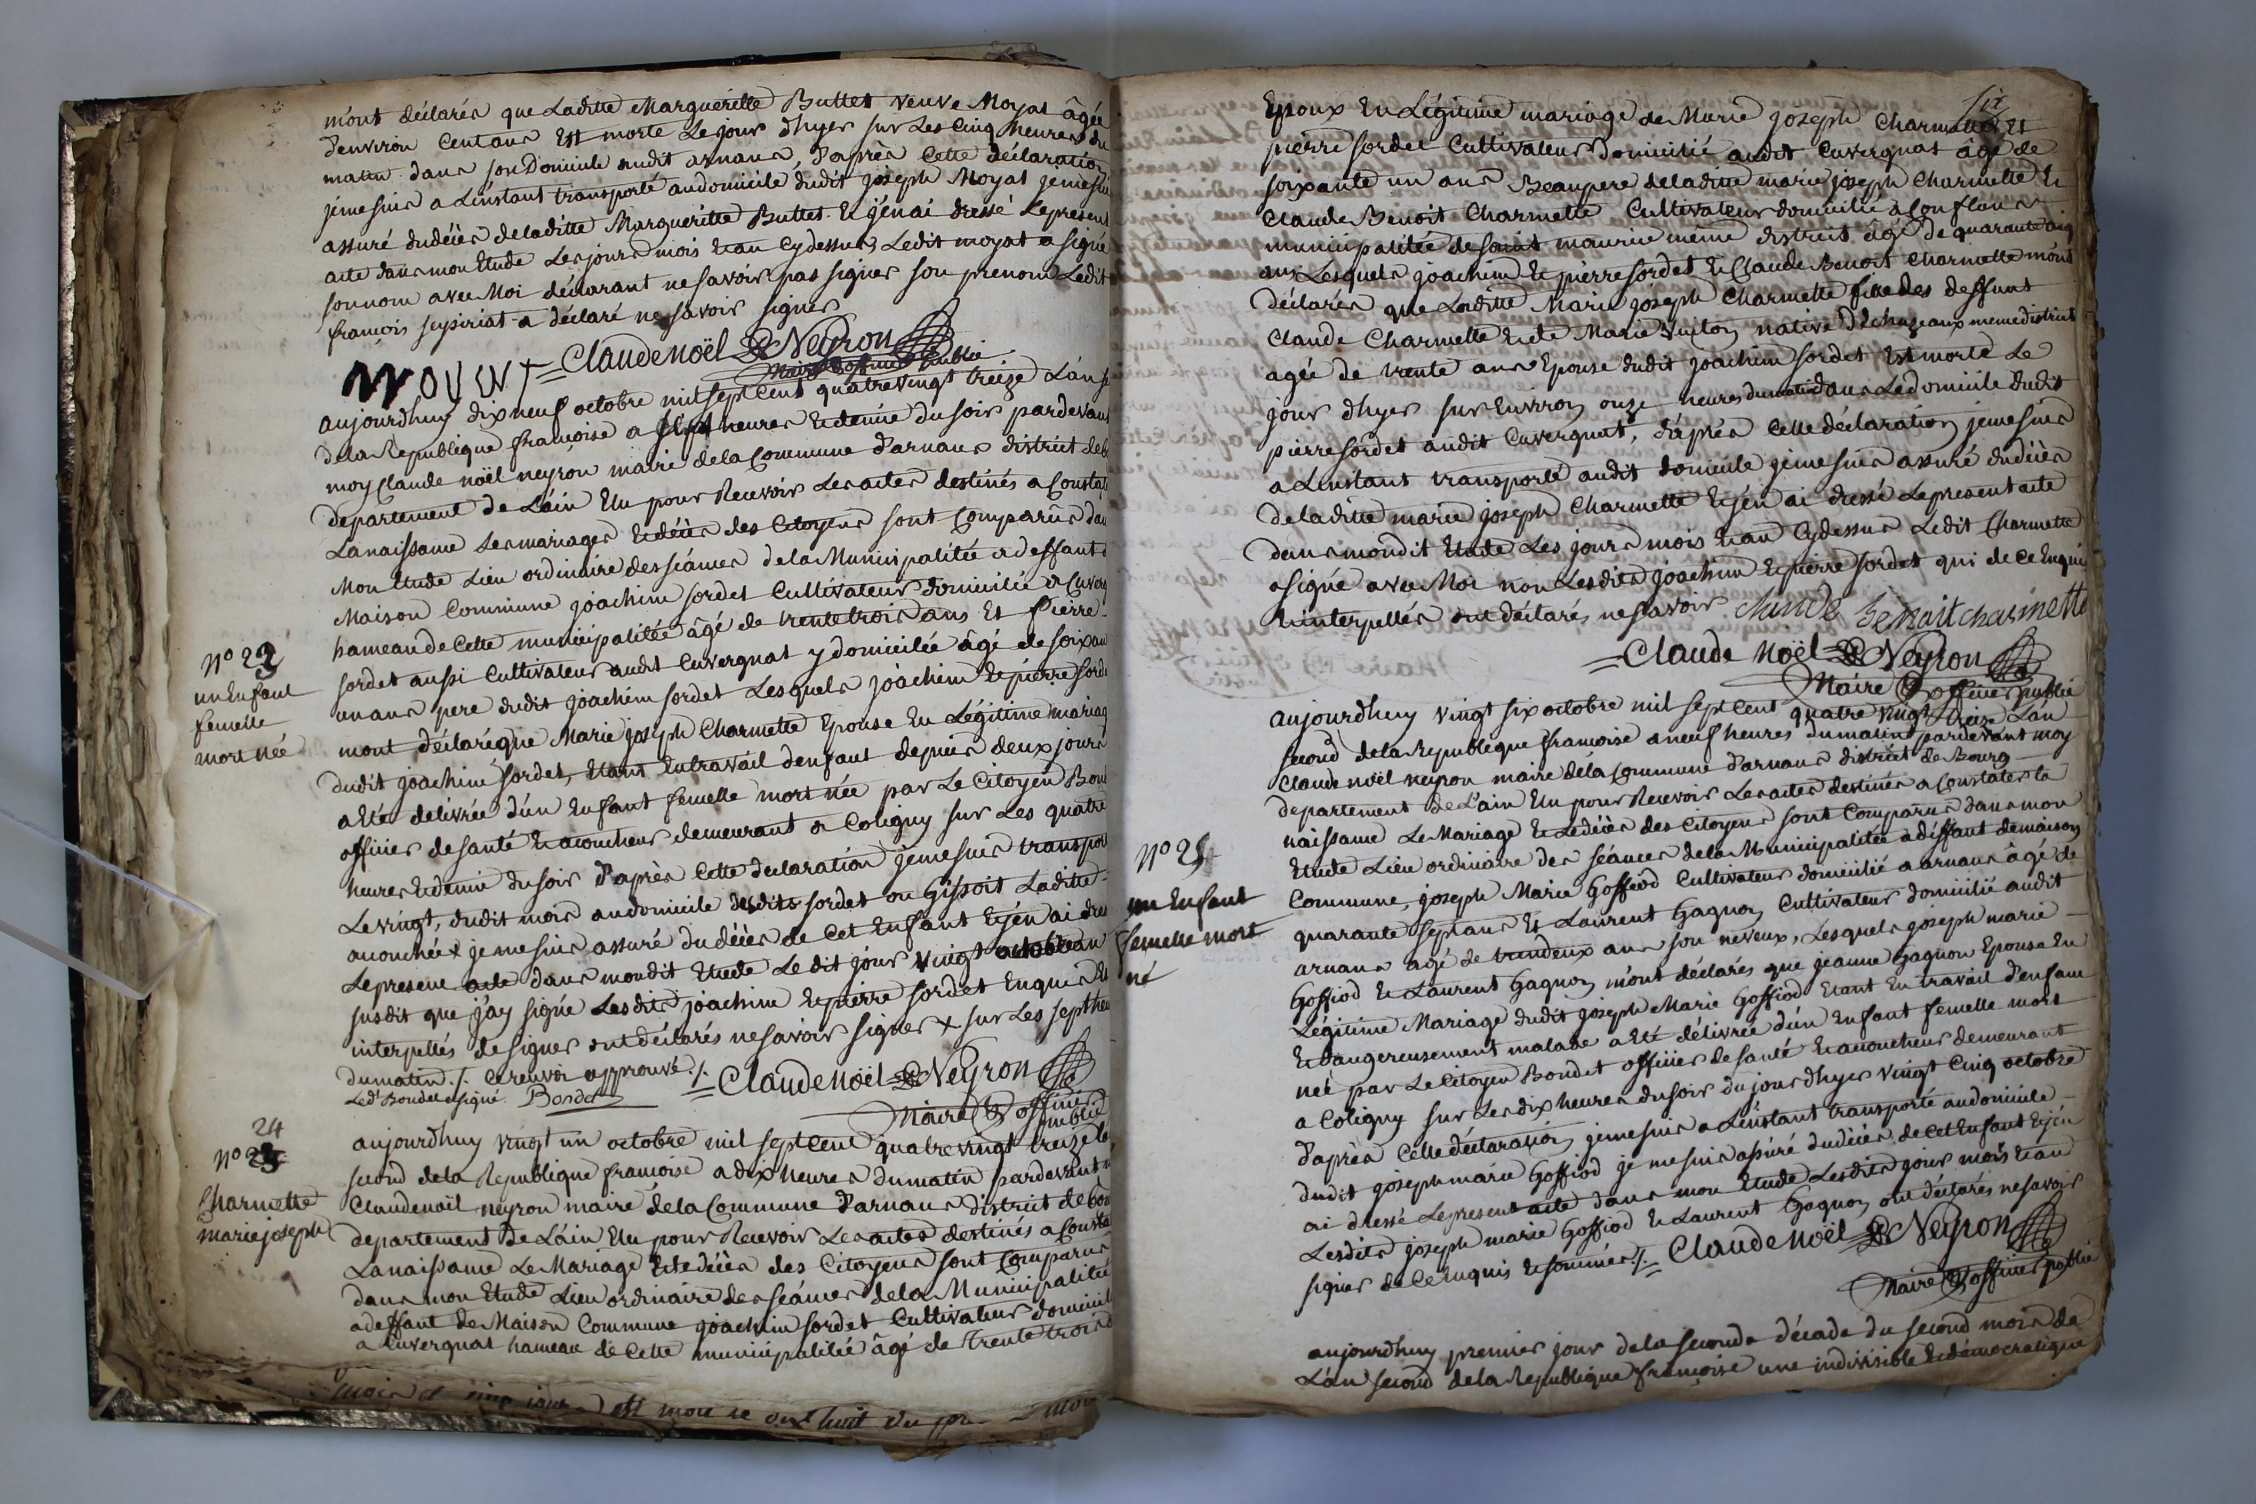 m'ont déclarés que Laditte Marguerite Buttet veuve Moyat âgée
d'environ Cent ans Est morte Le jour d'hyer sur Les Cinq heures du
matin dans son Domicile audit arnans, d'après Cette déclaration
je me suis a L'instant transporté au domicile dudit joseph Moyat je me suis
assuré du décès de laditte Marguerite Buttet Et j'en ai dressé Le present
acte dans mon Etude Les jours mois Et an Cydessus Ledit moyat a signé
son nom avec Moi déclarant ne savoir pas signer son prenom Ledit
françois a déclaré ne savoir signer
=Claude Noël Neyron
Maire & officier publié
aujourdhuy dix neuf octobre mil sept Cent quatre vingt treize L'an
de la Republique françoise a sept heures Et demie du soir pardevant
moy Claude noël neyron maire de la Commune d'arnans district de
departement de L'ain Elu pour Recevoir Les actes destinés a Constater
La naissance Les mariages Et décès des Citoyens sont Comparus dans
Mon Etude Lieu ordinaire des séances de la Municipalitée a deffaut
Maison Commune joachim sordet Cultivateur domicilié a Cuverg
hameau de Cette municipalitée âgé de trente trois ans Et pierre
N° 23
un Enfant
femelle
mort née
sordet aussi Cultivateur audit Cuvergnat y domicilée âgé de soixante
un ans pere dudit joachim sordet Lesquels joachim Et pierre sordet
mont déclaré que Marie joseph Charmette Epouse En Légitime mariage
dudit joachim sordet, Etant En travail d'enfant depuis deux jours
a Eté délivrée d'un Enfant femelle mort née par Le Citoyen Bondet
officier de santé Et accoucheur demeurant a Coligny sur Les quatre
heures Et demie du soir d'après Cette declaration je me suis transporté
Le vingt, dudit mois au domicile desdits sordet ou Gissoit Laditte
accouchée + je me suis assuré du décès de Cet Enfant Et j'en ai dressé
Le present acte dans mondit Etude Le dit jour vingt octobre an
susdit que j'ay signé Lesdits joachim Et pierre sordet Enquis Et
interpellés de signer ont déclarés ne savoir signer + sur Les sept heures
du matin ./. Ce renvoi approuvé ./.
=Claude Noël Neyron
Led' Bondet a signé. Bondet
Maire & officier
publié
24
N° 23
Charmette
marie joseph
aujourdhuy vingt un octobre mil sept Cent quatre vingt treize L'an
second de la Republique françoise a dix heures du matin pardevant
Claude noël neyron maire de la Commune d'arnans district de Bourg
departement de L'ain Elu pour Recevoir Les actes destinés a Constater
La naissance Le Mariage Et le décès des Citoyens sont Comparus
dans mon Etude Lieu ordinaire des séances de la Municipalitée
a deffaut de Maison Commune joachim sordet Cultivateur domicilié
a Cuvergnat hameau de Cette municipalitée âgé de trente trois
Epoux En Légitime mariage de Marie joseph Charmette Et
pierre sordet Cultivateur Domicilié audit Cuvergnat âgé de
soixante un ans Beaupere de laditte marie joseph Charmette Et
Claude Benoit Charmette Cultivateur domicilié a Conflans
municipalitée de saint maurice même district âgé de quarante cinq
ans Lesquels joachim Et pierre sordet Et Claude Benoit Charmette m'ont
déclarés que Laditte Marie joseph Charmette fille des deffunt
Claude Charmette Et de Marie Vuiton native de Chazeaux meme district
agée de trente ans Epouse dudit joachim sordet Est morte Le
jour d'hyer sur Environ onze heures du matin dans Le domicile dudit
pierre sordet audit Cuvergnat, d'après Cette déclaration je me suis
a L'instant transporté audit domicile je me suis assuré du décès
de laditte marie joseph Charmette Et j'en ai dressé Le present acte
dans mondit Etude Les jours mois Et an Cydessus Ledit Charmette
a signé avec Moi non Lesdits joachim Et pierre sordet qui de Ce Enquis
Et interpellés ont déclarés ne savoir Claude Benoit charmette
=Claude Noël Neyron
Maire & officier publié
aujourdhuy vingt six octobre mil sept Cent quatre vingt treize L'an
second de la Republique françoise a neuf heures du matin pardevant moy
Claude noël neyron maire de la Commune d'arnans district de Bourg
departement de L'ain Elu pour Recevoir Les actes destinés a Constater la
naissance Le Mariage Et Le décès des Citoyens sont Comparus dans mon
Etude Lieu ordinaire des séances de la Municipalitée a deffaut de maison
N° 25
un Enfant
femelle mort
né
Commune, joseph Marie Goffiod Cultivateur domicilié a arnans âgé de
quarante sept ans Et Laurent Gagnon Cultivateur domicilié audit
arnans agé de trendeux ans son neveux, Lesquels joseph marie
Goffiod Et Laurent Gagnon m'ont déclarés que jeanne Gagnon Epouse En
Légitime Mariage dudit joseph Marie Goffiod Etant En travail d'enfant
Et dangereusement malade a Eté délivrée d'un Enfant femelle mort
née par Le Citoyen Bondet officier de santé Et accoucheur demeurant
a Coligny sur Les dix heures du soir du jour d'hyer vingt Cinq octobre
d'après Cette déclaration, je me suis a L'instant transporté au domicile
dudit joseph marie Goffiod je me suis assuré du décès de Cet Enfant Et j'en
ai dressé Le present acte dans mon Etude Lesdits jour mois Et an
Lesdits joseph marie Goffiod Et Laurent Gagnon ont déclarés ne savoir
signer de Ce Enquis Et sommés ./. =Claude Noël Neyron
Maire & officier publié
aujourdhuy premier jour de la seconde décade du second mois de
L'an second de la Republique françoise une indivisible Et démocratique